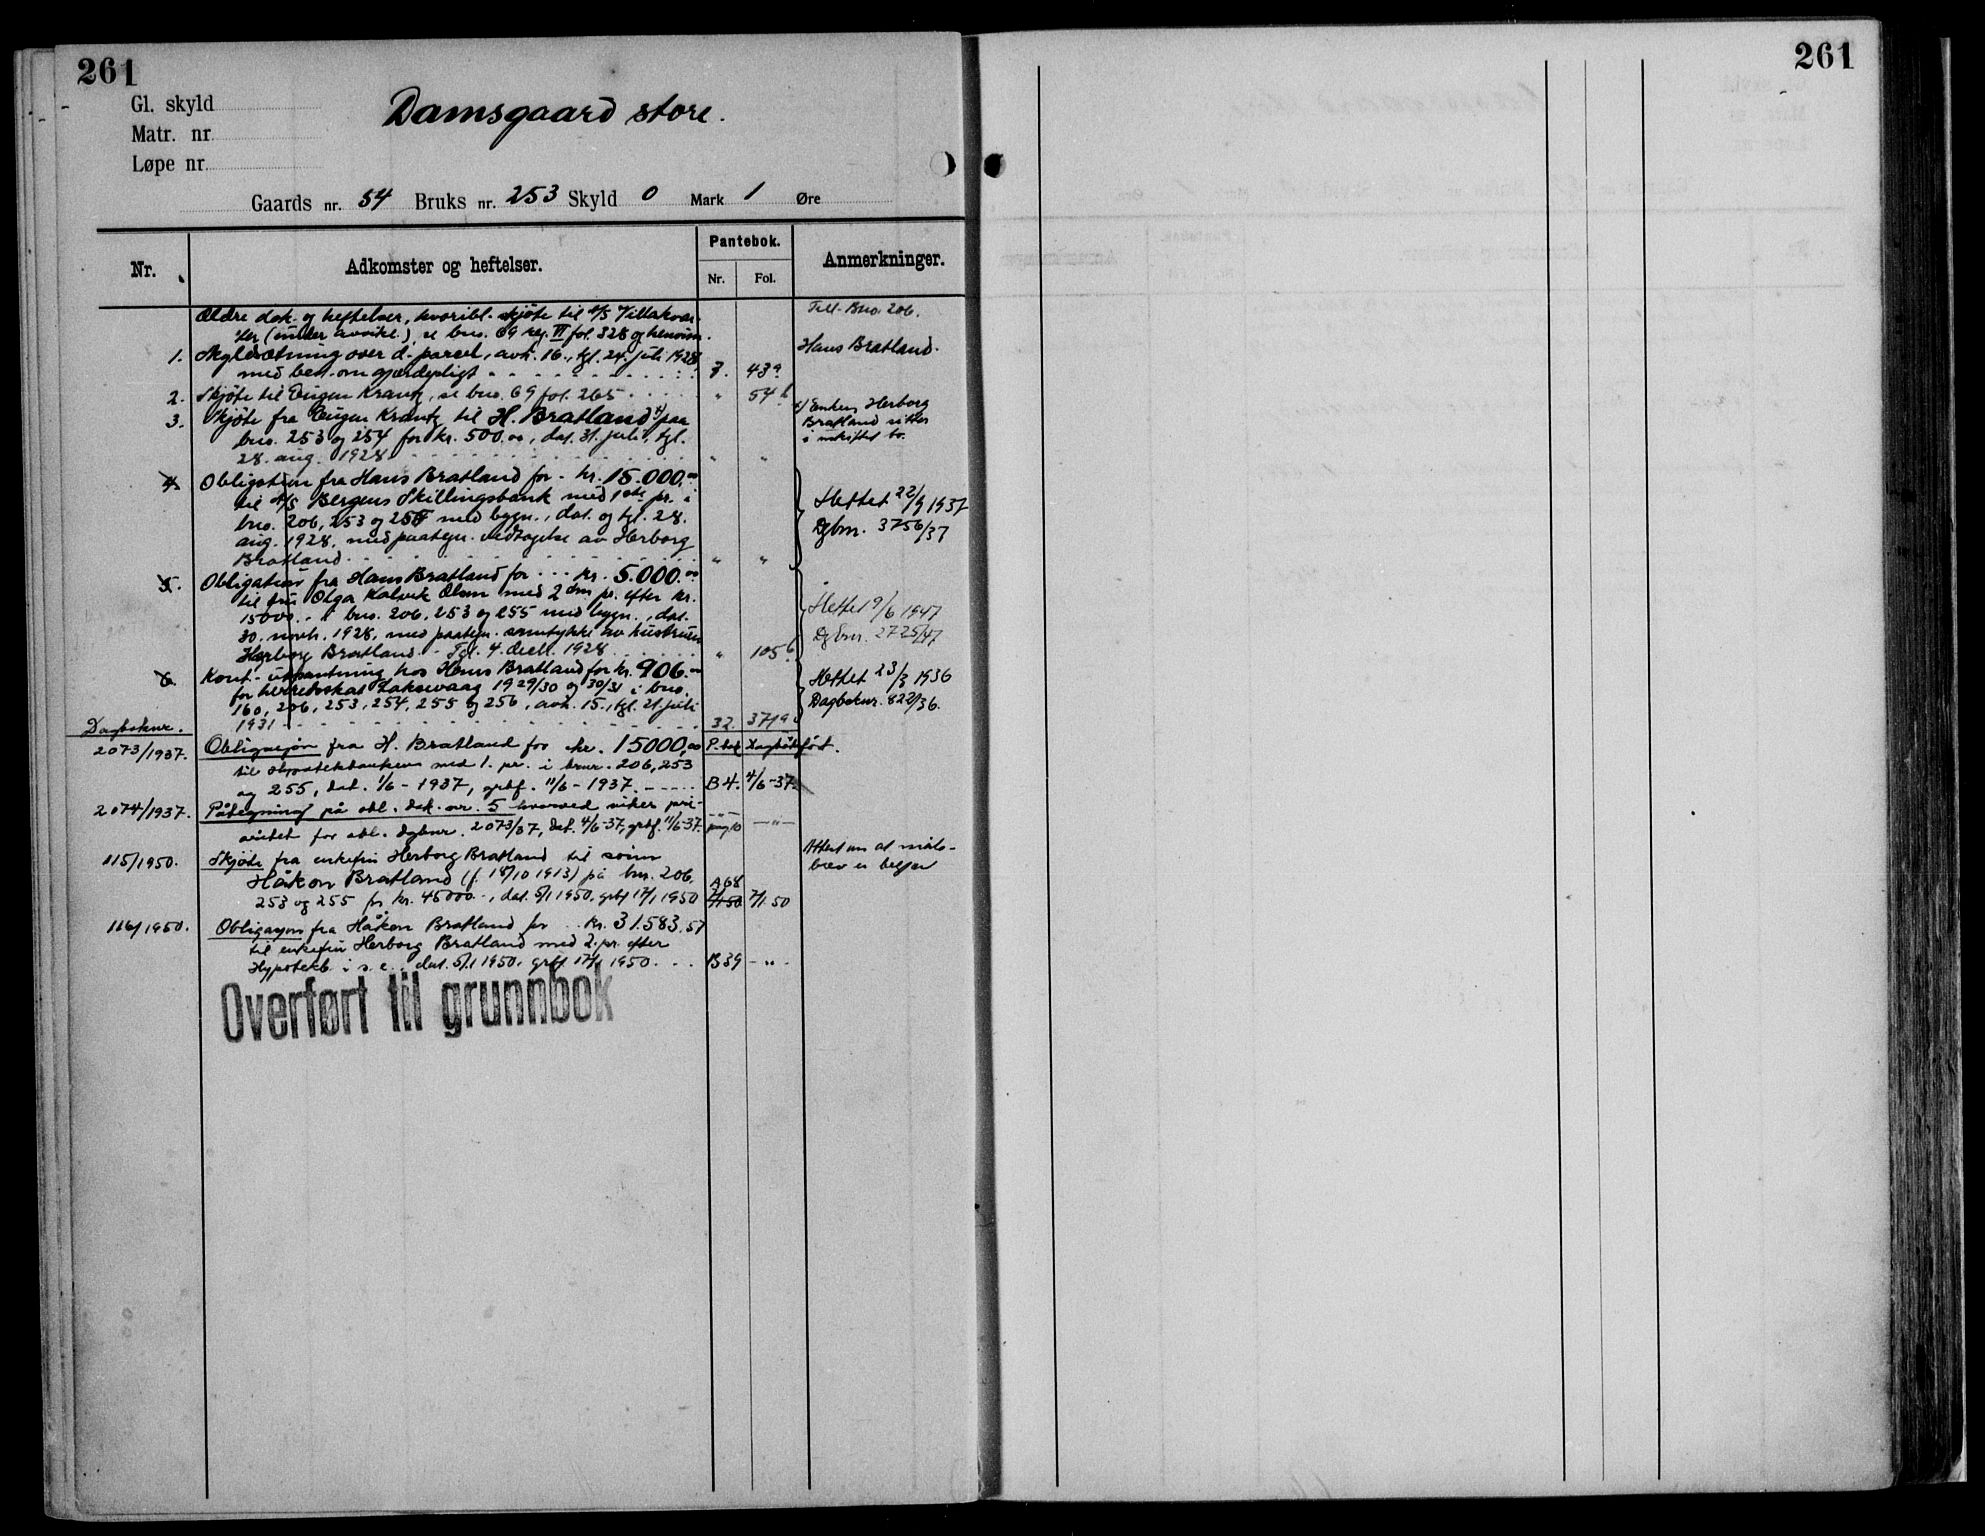 261
261
Gl. skyld
Damsgaard store.
Matr. nr.
Løpe nr.
Gaards nr. 54 Bruks nr. 253 Skyld 0 Mark 1 Øre
Nr.
Adkomster og heftelser.
Pantebok.
Nr. Fol.
Anmerkninger.
Ældre dok. og heftelser, hvoribl. skjøte til A/S Villakvar-
ter (under avvikl.), se bno. 69 reg. VI fol. 328 og henvisn.
Till. Bno. 206.
1. Skyldsætning over d. parcel, avh. 16., tgl. 24. juli 1928
Hans Bratland.
med best. om gjærdepligt 7. 43a
2. Skjøte til Eugen Krantz, se bno. 69 fol. 265 " 54b
3. Skjøte fra Eugen Krantz til H. Bratland x) paa
bno. 253 og 254 for kr. 500.00, dat. 31. juli, tgl.
28. aug. 1928 " "
x) Enken Herborg
Bratland sitter
i uskiftet bo.
4. Obligation fra Hans Bratland for kr. 15.000.00
til A/S Bergens Skillingsbank med 1ste pr. i
bno. 206, 253 og 255 med bygn., dat. og tgl. 28.
aug. 1928, med paategn. vedtagelse av Herborg
Bratland " "
Slettet 22/9 1937
Dgbnr. 3756/37
5. Obligation fra Hans Bratland for kr. 5.000.00
til fru Olga Kalvik Olsen med 2den pr. efter kr.
15000.- i bno. 206, 253 og 255 med bygn., dat.
30. novbr. 1928, med paategn. samtykke av hustruen
Herborg Bratland. - Tgl. 4. decbr. 1928 " 105b
Slettet 9/6 1947
Dgbnr. 2725/47
6. Kont. utpantning hos Hans Bratland for kr. 906.00
for herredsskat Laksevaag 1929/30 og 30/31 i bno.
160, 206, 253, 254, 255 og 256, avh. 15., tgl. 21. juli
1931 32. 371a
Slettet 23/3 1936
Dagboknr. 822/36.
Dagboknr.
2073/1937. Obligasjon fra H. Bratland for kr. 15000,00 P.bok Dagbokført.
til Hypotekbanken med 1. pr. i bnr. 206, 253
og 255, dat. 1/6 - 1937, grbf. 11/6 - 1937. B 4. 4/6-37.
2074/1937. Påtegning på obl. dok. nr. 5 hvorved viker pri-
oritet for obl. dgbnr. 2073/37, dat. 4/6-37, grbf. 11/6-37. - " -
115/1950. Skjøte fra enkefru Herborg Bratland til sønn
Håkon Bratland (f. 18/10 1913) på bnr. 206,
253 og 255 for kr. 45000.-, dat. 5/1 1950, grbf 17/1 1950 A68 7/1 50
Attest om at måle-
brev er
116/1950. Obligasjon fra Håkon Bratland for kr. 31.583,51
til enkefru Herborg Bratland med 2. pr. efter
Hypotekb. i s.e. dat. 5/1 1950. grbf 17/1 1950. B39 - " -
Overført til grunnbok